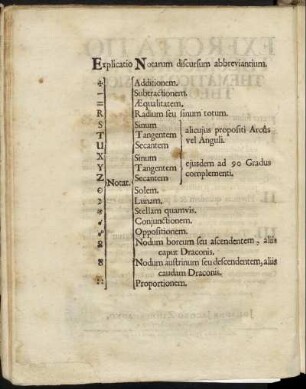 Explicatio Notarum discursum abbreviantium.
+ Additionem.
− Subtractionem.
= Æqualitatem.
R Radium seu sinum totum.
S Sinum
T Tangentem alicujus propositi Arcus
U Secantem vel Anguli.
X Sinum
Y Tangentem ejusdem ad 90 Gradus
Z Secantem complementi.
Notat
☉ Solem.
☽ Lunam.
* Stellam quamvis.
☌ Conjunctionem.
☍ Oppositionem.
☊ Nodum boreum seu ascendentem, aliis
caput Draconis.
☋ Nodum austrinum seu descendentem, aliis
caudam Draconis.
:: Proportionem.